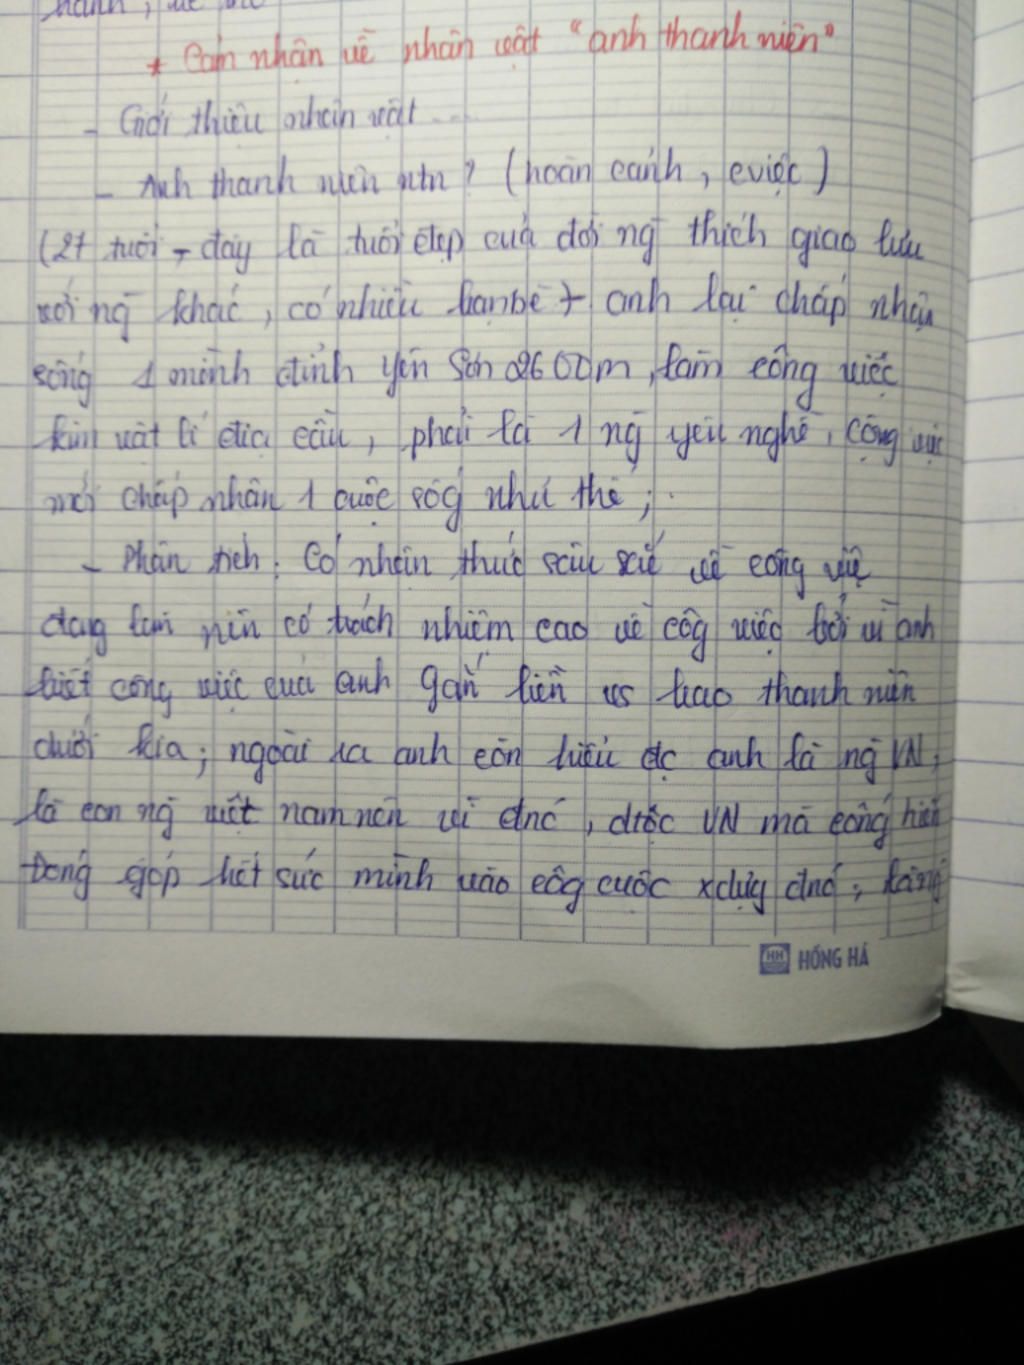 * Cảm nhận về nhân vật "anh thanh niên"
- Giới thiệu nhân vật ...
- Anh thanh niên ntn? (hoàn cảnh, cviệc)
(27 tuổi - đây là tuổi đẹp của đời ng̃ thích giao lưu
với ng̃ khác, có nhiều bạn bè + anh lại chấp nhận
sống 1 mình đỉnh yên Sơn 2600m, làm công việc
kim vật lí địa cầu, phải là 1 ng̃ yêu nghề, công việc
mới chấp nhân 1 cuộc sốg như thế;
- Phân tích: Có nhận thức sâu sắc về công việc
đang làm nên có trách nhiệm cao về côg việc bởi vì anh
biết công việc của anh gắn liền vs bao thanh niên
dưới kia; ngoài ra anh còn hiểu đc anh là ng̃ VN,
là con ng̃ việt nam nên vì đnc, dtộc VN mà cống hiến
Đóng góp hết sức mình vào côg cuộc xdựg đnc,
HH HỒNG HÀ